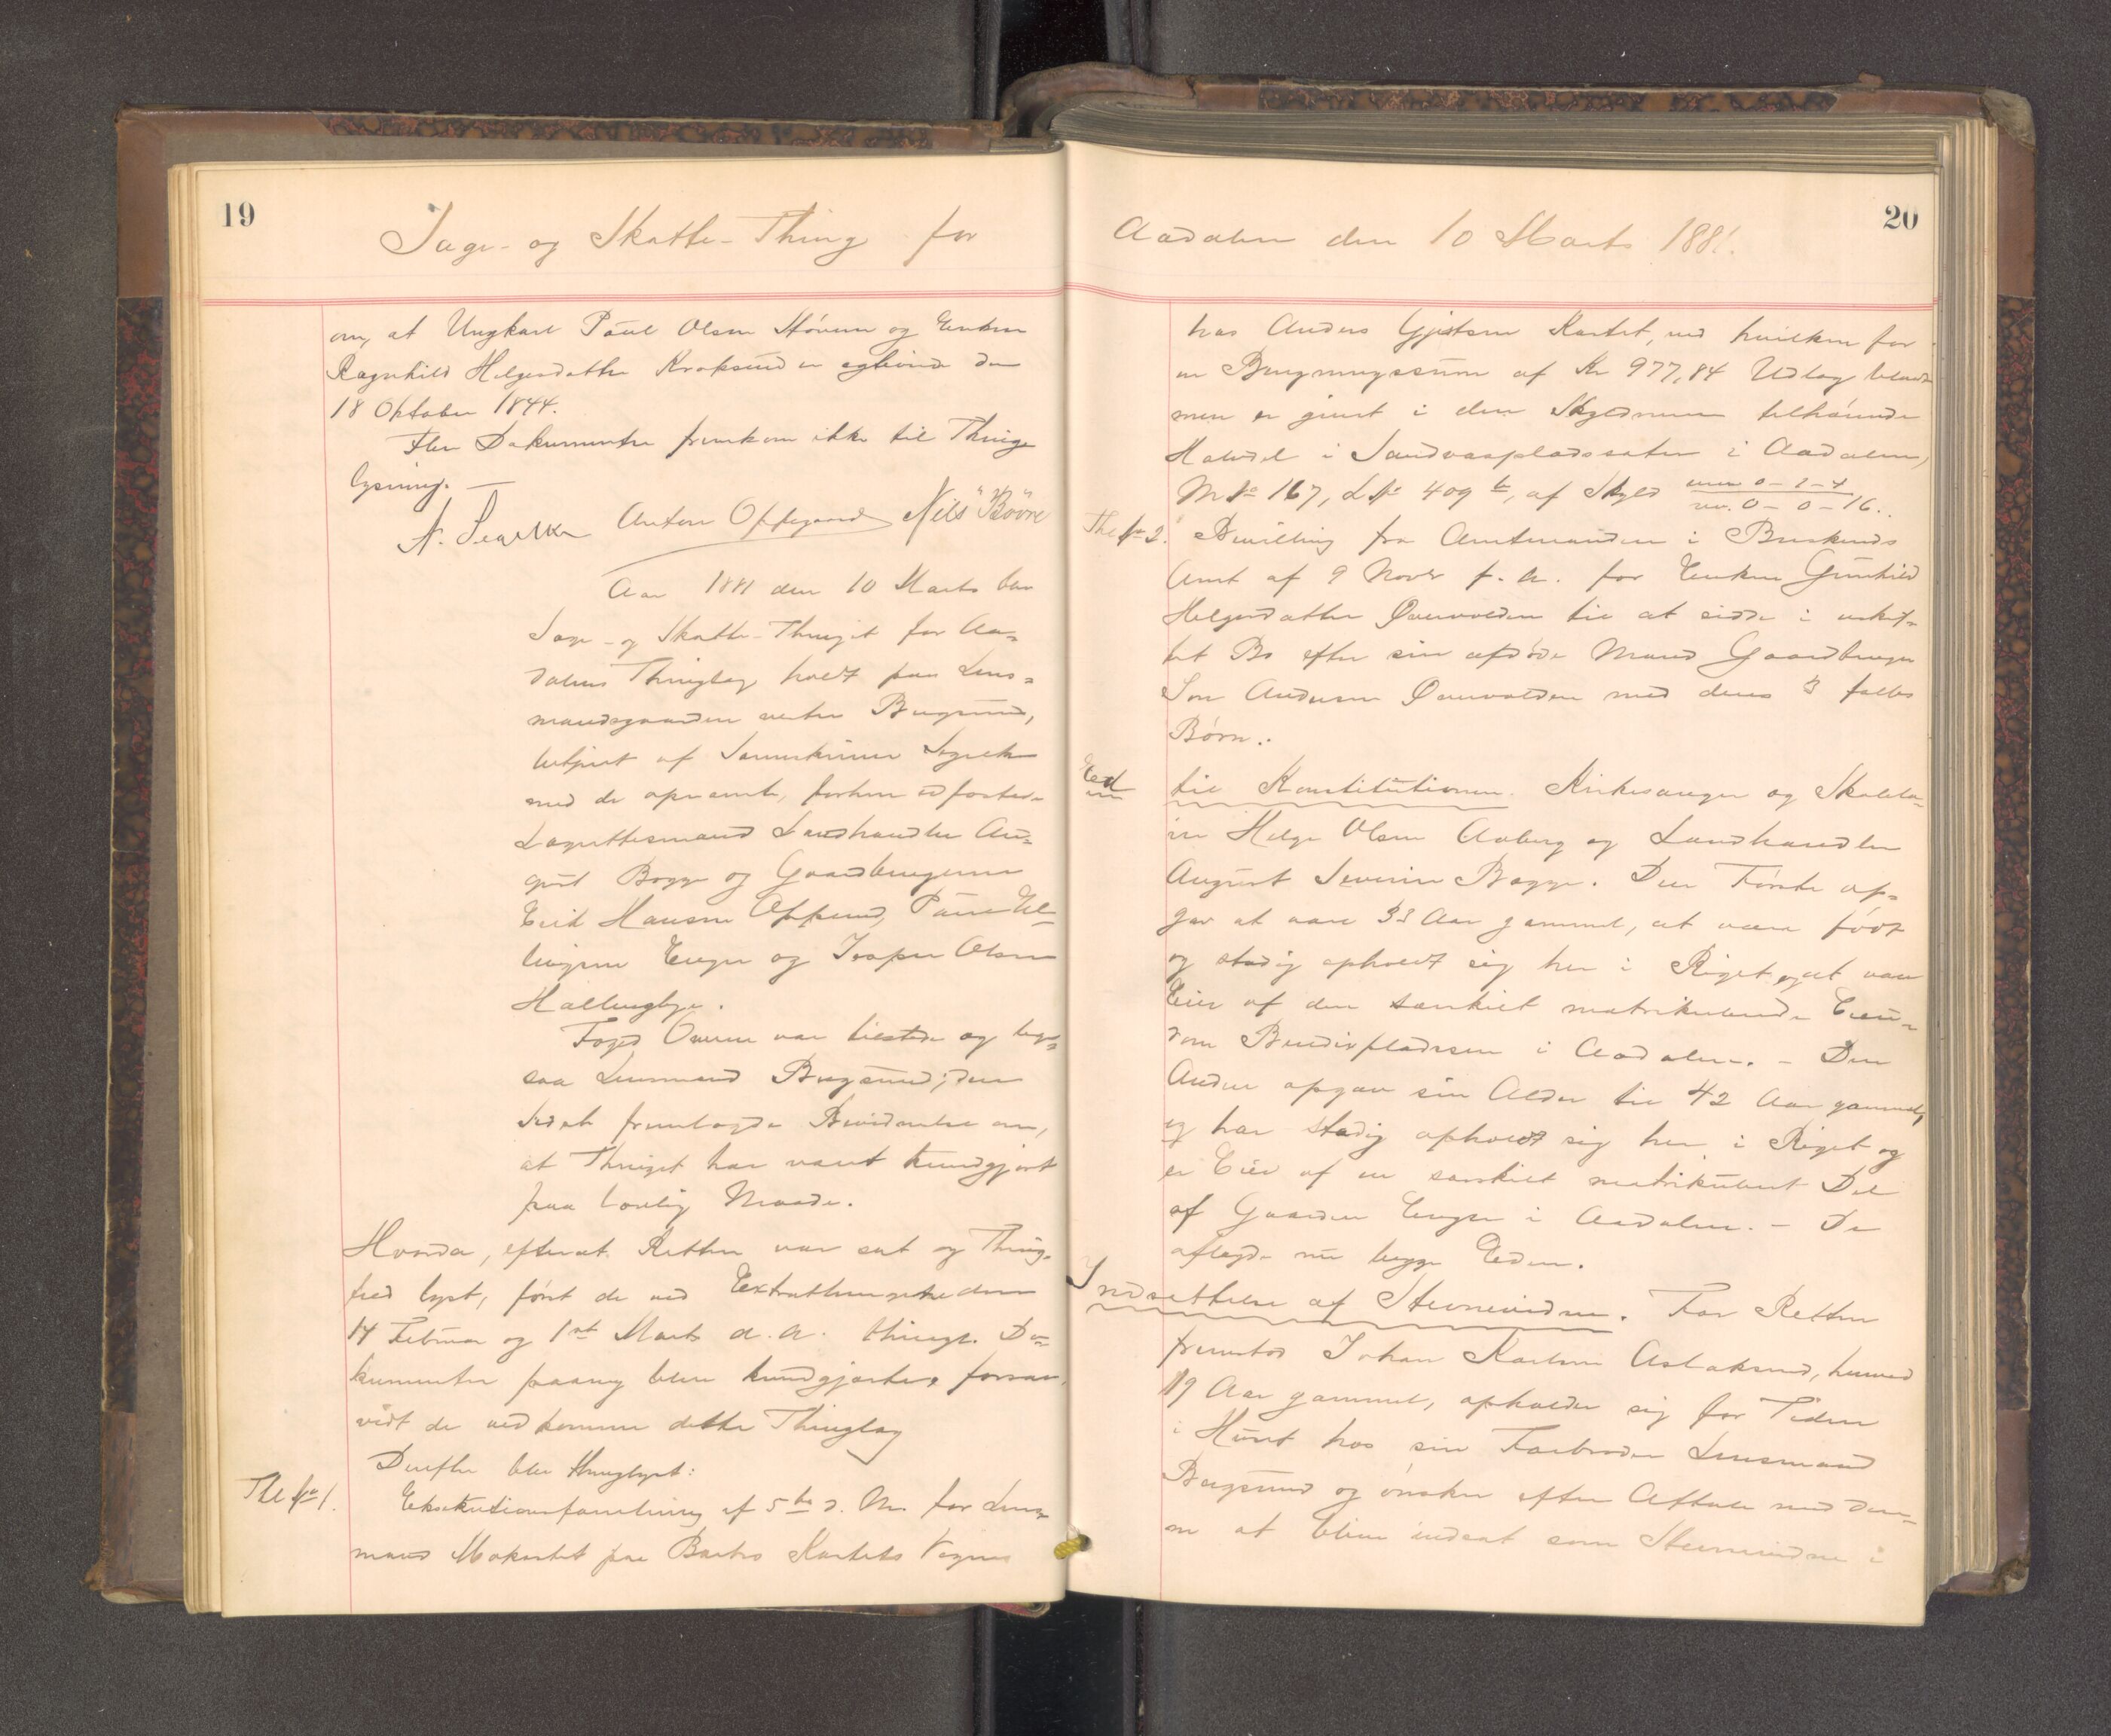 19
Sage- og Skatte-Thing for
om, at Ungkarl Paul Olsen Stóveren og Enken
Ragnhild Helgesdatter Kroksund er egteviede den
18 Oktober 1844.
Flere Dokumenter fremkom ikke til Thing-
lysning. —
Anton Oppegaard Nils Bövre
Aar 1881 den 10 Marts blev
Sage- og Skatte-Thinget for Aa-
dalens Thinglag holdt paa Lens-
mandsgaarden vestre Bergsund,
betjent af Sorenskriver
med de opnævnte, forhen edfæstede
Lagrettesmænd Landhandler Au-
gust Bagge og Gaardbrugerne
Erik Hansen Oppsund, Paul El-
lingsen Enger og Jesper Olsen
Hallingby.
Foged Omsen var tilstede og lige-
saa Lensmand Bergsund; den
sidste fremlagde Bevidnelse om,
at Thinget har været kundgjort
paa lovlig Maade.
Hvorda, efterat Retten var sat og Thing-
fred lyst, først de ved Extrathingene den
14 Februar og 1ste Marts d. A. thingl. Do-
kumenter paany blev kundgjorte, forsaa-
vidt de vedkomme dette Thinglag
Derefter blev thinglyst:
Thl № 1.
Eksekutionsforretning af 5te d. M. for Lens-
mand Mokastet paa Barbro Kastets Vegne
20
Aadalen den 10 Marts 1881.
hos Anders Gjertsen Kastet, ved hvilken for
en Beregningssum af Kr 977,84 Udlæg blandt
men er gjort i den Skyldneren tilhørende
Halvdel i Sandvasplads i Aadalen,
M № 167, L № 409 b, af Skyld 0-2-4
rev. 0-0-16.
Thl № 2.
Bevilling fra Amtmanden i Buskeruds
Amt af 9 Novbr f. A. for Enken Gunhild
Helgesdatter Øvervolden til at sidde i uskif-
tet Bo efter sin afdøde Mand Gaardbruger
Jon Andersen Øvervolden med deres 3 fælles
Børn.
Ed
til Konstitutionen. Kirkesanger og Skolelæ-
rer Helge Olsen Aaberg og Landhandler
August Severin Bagge. Den Første op-
gav at være 33 Aar gammel, at være født
og stadig opholdt sig her i Riget, og at være
Eier af den særskilt matrikulerede Eien-
dom Bendixpladsen i Aadalen. – Den
Anden opgav sin Alder til 42 Aar gammel,
og har stadig opholdt sig her i Riget og
er Eier af en særskilt matrikuleret Del
af Gaarden Enger i Aadalen. – De
aflagde nu begge Eden.
Indsættelse af Stevnevidne. For Retten
fremstod Johan Karlsen Aslaksrud, henved
19 Aar gammel, opholder sig for Tiden
i Huset hos sin Farbroder Lensmand
Bergsund og ønsker efter Aftale med den-
ne at blive indsat som Stevnevidne i